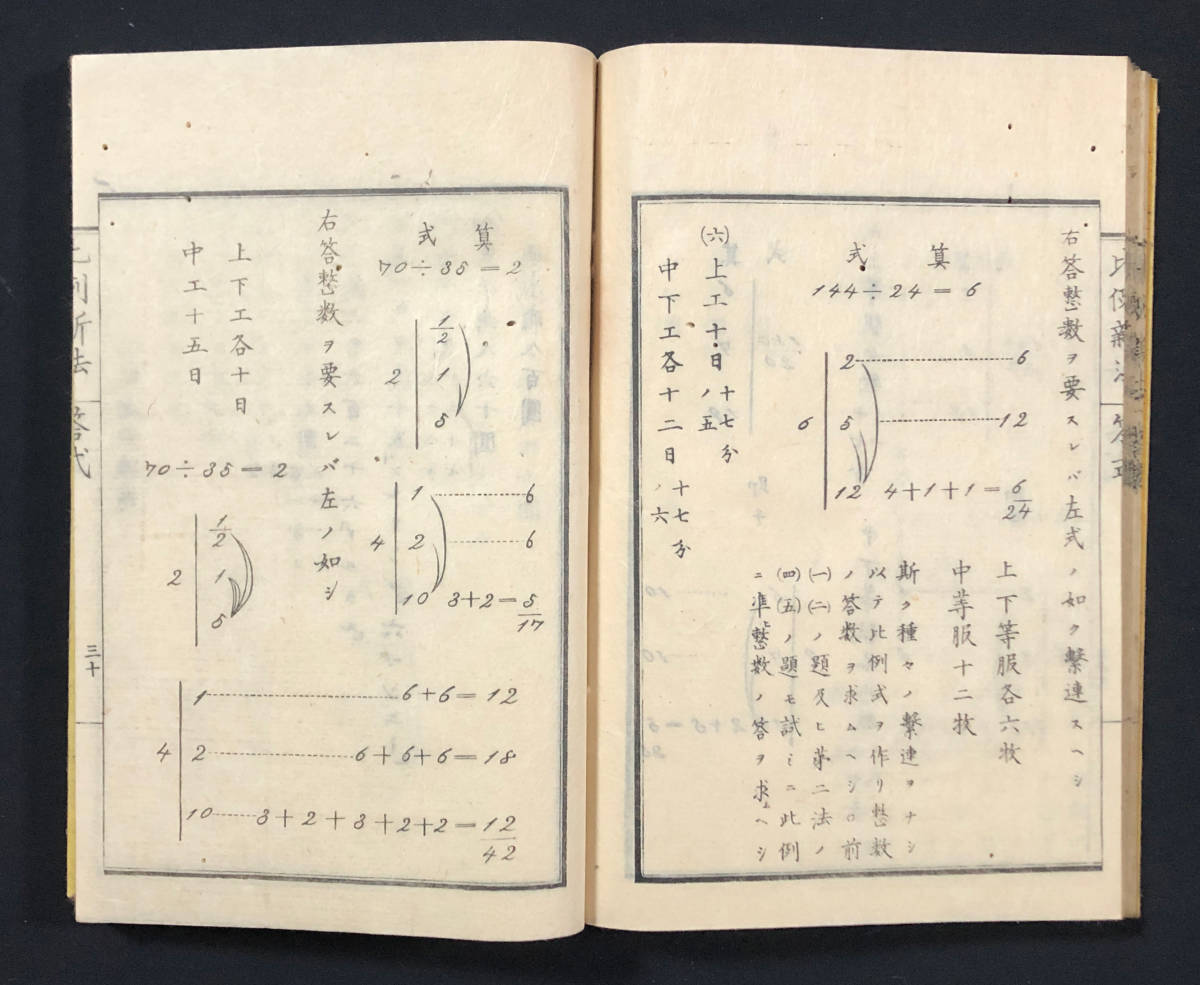 右答整数ヲ要スレバ左式ノ如ク繋連スヘシ
算式
144÷24=6
6
2 6
5 12
12 4+1+1=6
24
上下等服各六枚
中等服十二枚
斯ク種々ノ繋連ヲナシ
以テ比例式ヲ作リ整数
ノ答数ヲ求ムヘシ○前
(一)(二)ノ題及ヒ第二法ノ
(四)(五)ノ題モ試ミニ此例
ニ準シ整数ノ答ヲ求ムヘシ
(六)上工十日十七分ノ五
中下工各十二日十七分ノ六
算式
70÷35=2
2
1/2
1
5
4
1 6
2 6
10 3+2=5
17
右答整数ヲ要スレバ左ノ如シ
上下工各十日
中工十五日
70÷35=2
2
1/2
1
5
4
1 6+6=12
2 6+6+6=18
10 3+2+3+2+2=12
42
三十